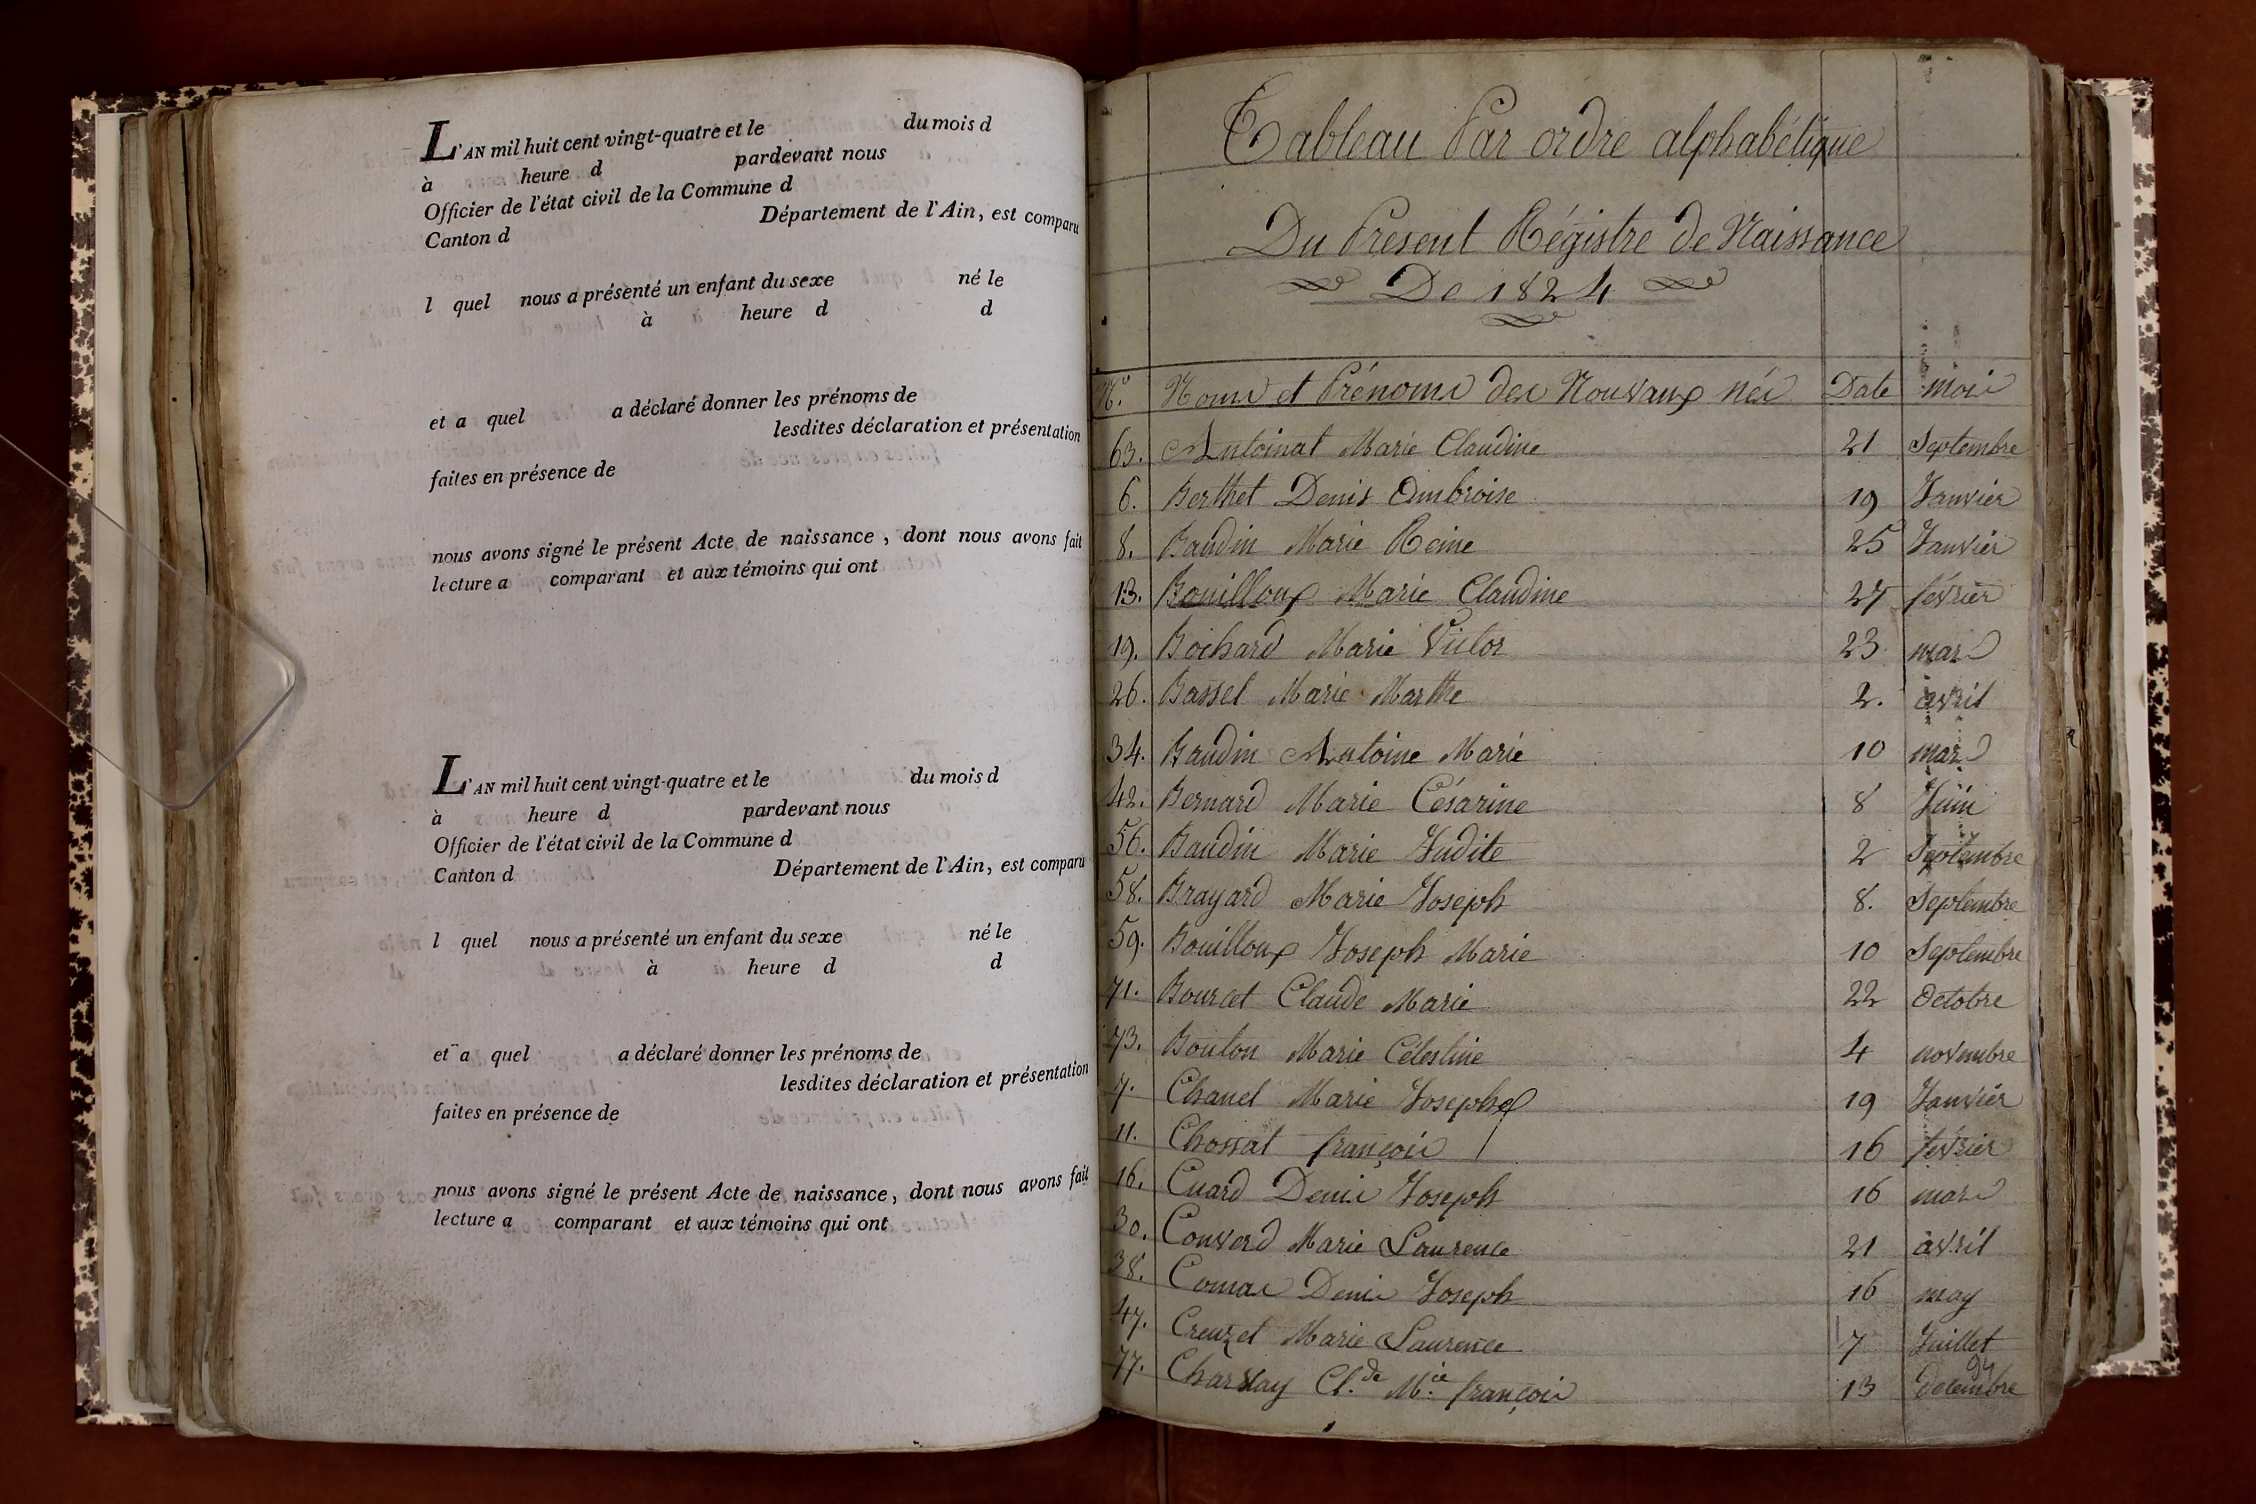 L'AN mil huit cent vingt-quatre et le du mois d
à heure d pardevant nous
Officier de l'état civil de la Commune d
Canton d Département de l'Ain, est comparu
l quel nous a présenté un enfant du sexe né le
à heure d d
et a quel a déclaré donner les prénoms de
lesdites déclaration et présentation
faites en présence de
nous avons signé le présent Acte de naissance, dont nous avons fait
lecture a comparant et aux témoins qui ont
L'AN mil huit cent vingt-quatre et le du mois d
à heure d pardevant nous
Officier de l'état civil de la Commune d
Canton d Département de l'Ain, est comparu
l quel nous a présenté un enfant du sexe né le
à heure d d
et a quel a déclaré donner les prénoms de
lesdites déclaration et présentation
faites en présence de
nous avons signé le présent Acte de naissance, dont nous avons fait
lecture a comparant et aux témoins qui ont
Tableau Par ordre alphabétique
Du Présent Régistre de Naissance
De 1824
N.o Noms et Prénoms des Nouvaux nés Date mois
63. Antoinat Marie Claudine 21 Septembre
6. Berthet Denis Ambroise 19 Janvier
8. Baudin Marie Reine 25 Janvier
13. Bouilloux Marie Claudine 27 février
19. Bochard Marie Victor 23 mars
26. Bassel Marie Marthe 2. avril
34. Baudin Antoine Marie 10 mars
42. Bernard Marie Césarine 8 Juin
56. Baudin Marie Judite 2 Septembre
58. Brayard Marie Joseph 8. Septembre
59. Bouilloux Joseph Marie 10 Septembre
71. Bourcet Claude Marie 22 Octobre
73. Bouton Marie Célestine 4 novembre
7. Chanel Marie Josephe 19 Janvier
11. Chossat françois 16 février
16. Cuard Denis Joseph 16 mars
30. Converd Marie Laurence 21 avril
38. Comas Denis Joseph 16 may
47. Creuzet Marie Laurence 7 Juillet
77. Charvay Cl.de M.ie françois 13 décembre
94